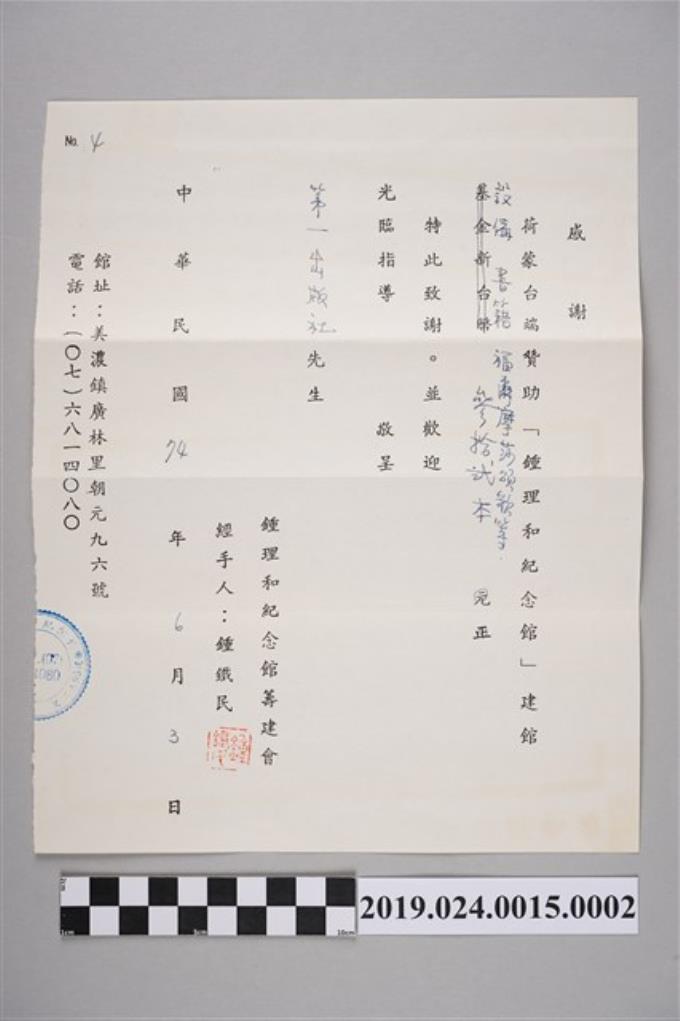 感謝
荷蒙台端贊助「鍾理和紀念館」建館
設備 書籍 福爾摩莎頌歌等
基金新台幣 參拾貳本 元正
特此致謝。並歡迎
光臨指導 敬呈
第一出版社先生
鍾理和紀念館籌建會
經手人：鍾鐵民
中華民國74年6月3日
館址：美濃鎮廣林里朝元九六號
電話：(〇七)六八一四〇八〇
No. 4
2019.024.0015.0002
1cm 5cm 10cm